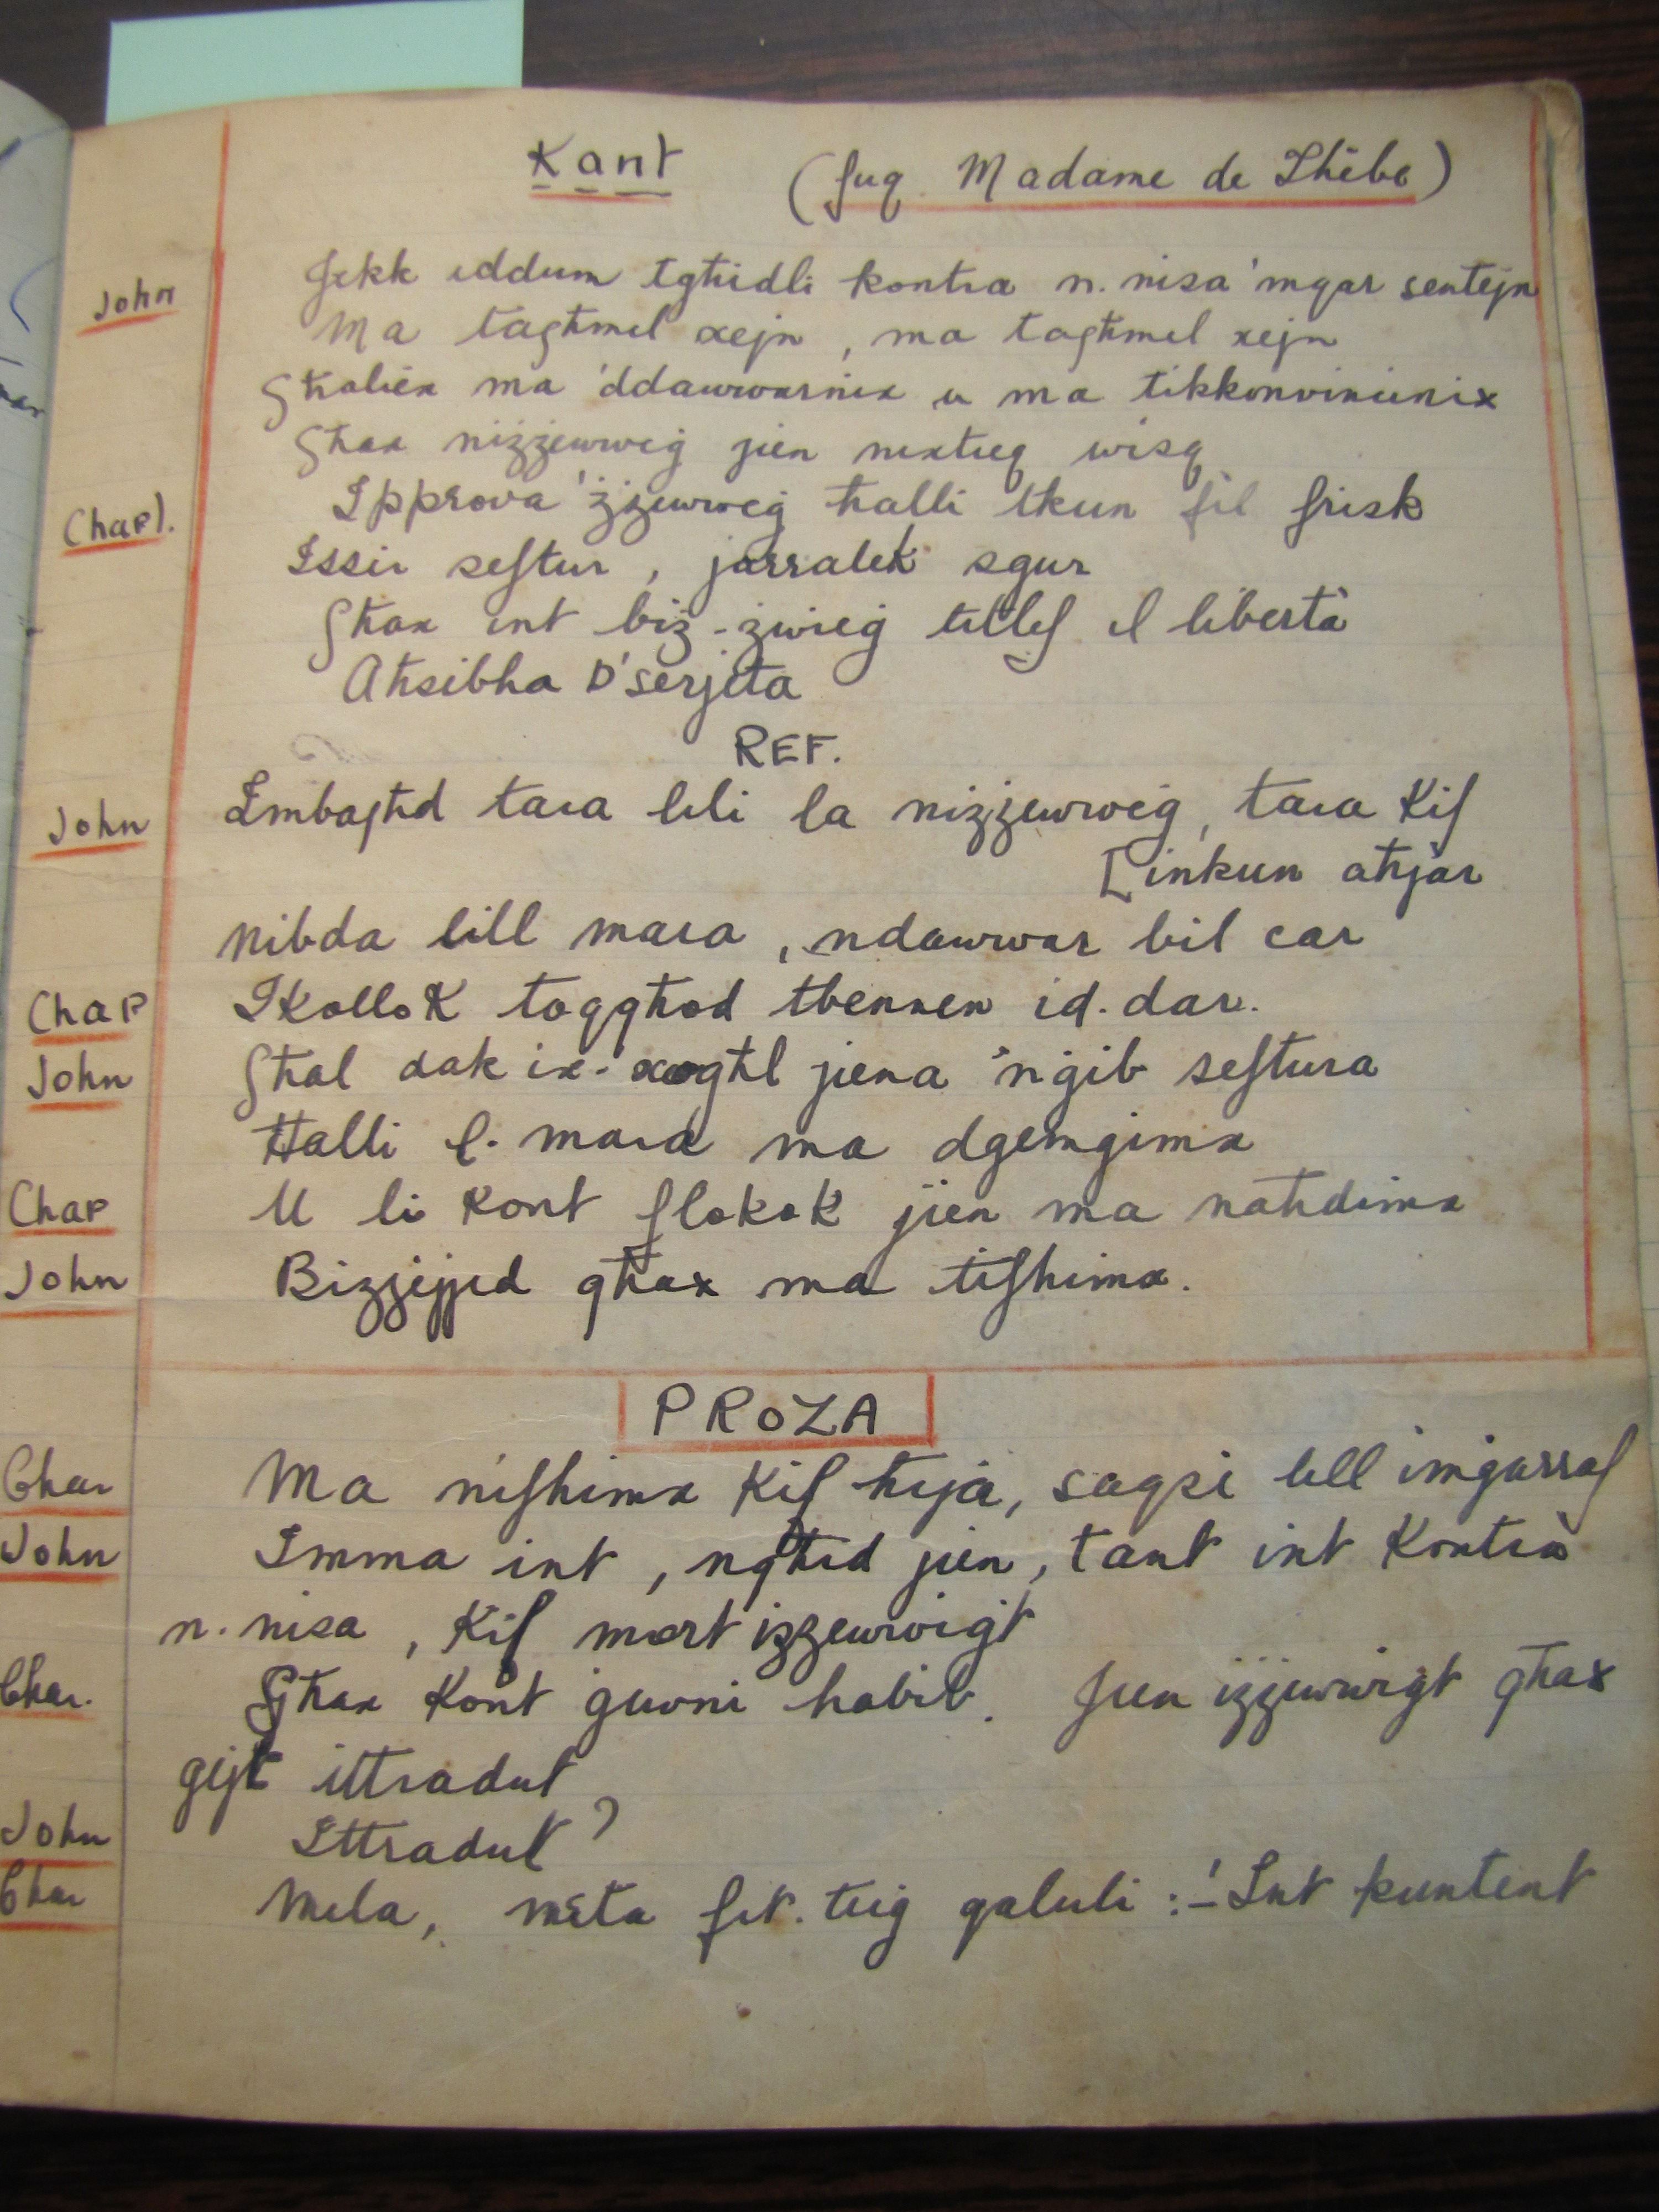 Kant (fuq Madame de Thèbe)
John Jekk iddum tgħidli kontra n. nisa 'mqar sentejn
Ma tagħmel xejn, ma tagħmel xejn
Għaliex ma 'ddawwarnix u ma tikkonvinċinix
Għax niżżewweġ jien nixtieq wisq
Chapl. Ipprova 'żżewweġ ħalli tkun fil frisk
Issir seftur, jassalek sgur
Għax int biż-żwieġ titlef il libertà
Aħsibha b'serjetà
REF.
John Imbagħd tara lili la niżżewweġ, tara kif
[inkun aħjar
nibda lill mara, ndawwar bil car
Chap Ikollok toqgħod tbennen id. dar.
John Għal dak ix-xogħl jiena 'nġib seftura
Ħalli l. mara ma dgemgimx
Chap U li kont flokok jien ma naħdimx
John Bizzejjed għax ma tifhimx.
PROZA
Char Ma nifhimx kif ħija, saqsi lill imġarraf
John Imma int, ngħid jien, tant int kontra
n. nisa, kif mort iżżewwiġt
Char. Għax kont ġuvni ħabib. Jien iżżewwiġt għax
ġejt ittradut
John Ittradut?
Char Mela, meta fit. tieġ qaluli :-'Int kuntent